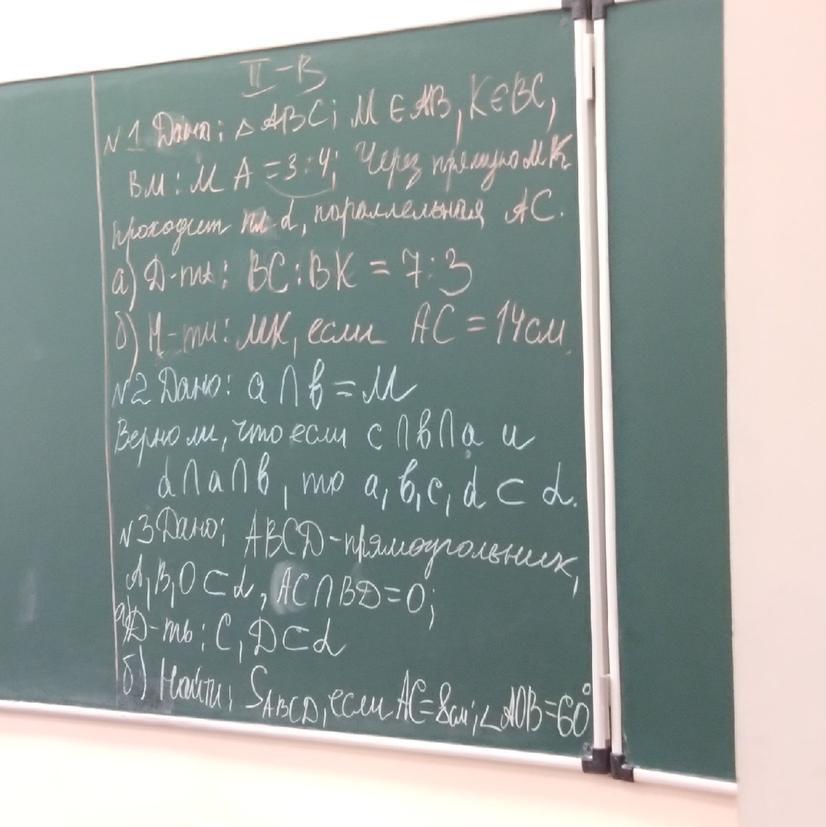 II-В
№1 Дано: △ABC; M∈AB, K∈BC,
BM:MA=3:4; Через прямую MK
проходит пл α, параллельная AC.
а) Д-ть: BC:BK=7:3
б) Н-ти: MK, если AC=14см.
№2 Дано: a∩b=M
Верно ли, что если c∩b∩a и
d∩a∩b, то a,b,c,d⊂α.
№3 Дано: ABCD-прямоугольник,
A,B,O⊂α, AC∩BD=O;
а) Д-ть: C,D⊂α
б) Найти: SABCD, если AC=8см; ∠AOB=60°